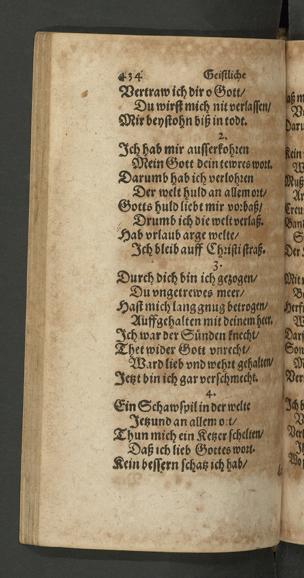 434 Geistliche
Vertraw ich dir o Gott/
Du wirst mich nit verlassen/
Mir beystohn biß in todt.
2.
Ich hab mir ausserkohren
Mein Gott dein tewres wort.
Darumb hab ich verlohren
Der welt huld an allem ort/
Gotts huld liebt mir vorbaß/
Drumb ich die welt verlaß.
Hab vrlaub arge welte/
Ich bleib auff Christi straß.
3.
Durch dich bin ich gezogen/
Du vngetrewes meer/
Hast mich lang gnug betrogen/
Auffgehalten mit deinem heer.
Ich war der Sünden knecht/
Thet wider Gott vnrecht/
Ward lieb vnd wehrt gehalten/
Jetzt bin ich gar verschmecht.
4.
Ein Schawspil in der welte
Jetzund an allem ort/
Thun mich ein Ketzer schelten/
Daß ich lieb Gottes wort.
Kein bessern schatz ich hab/